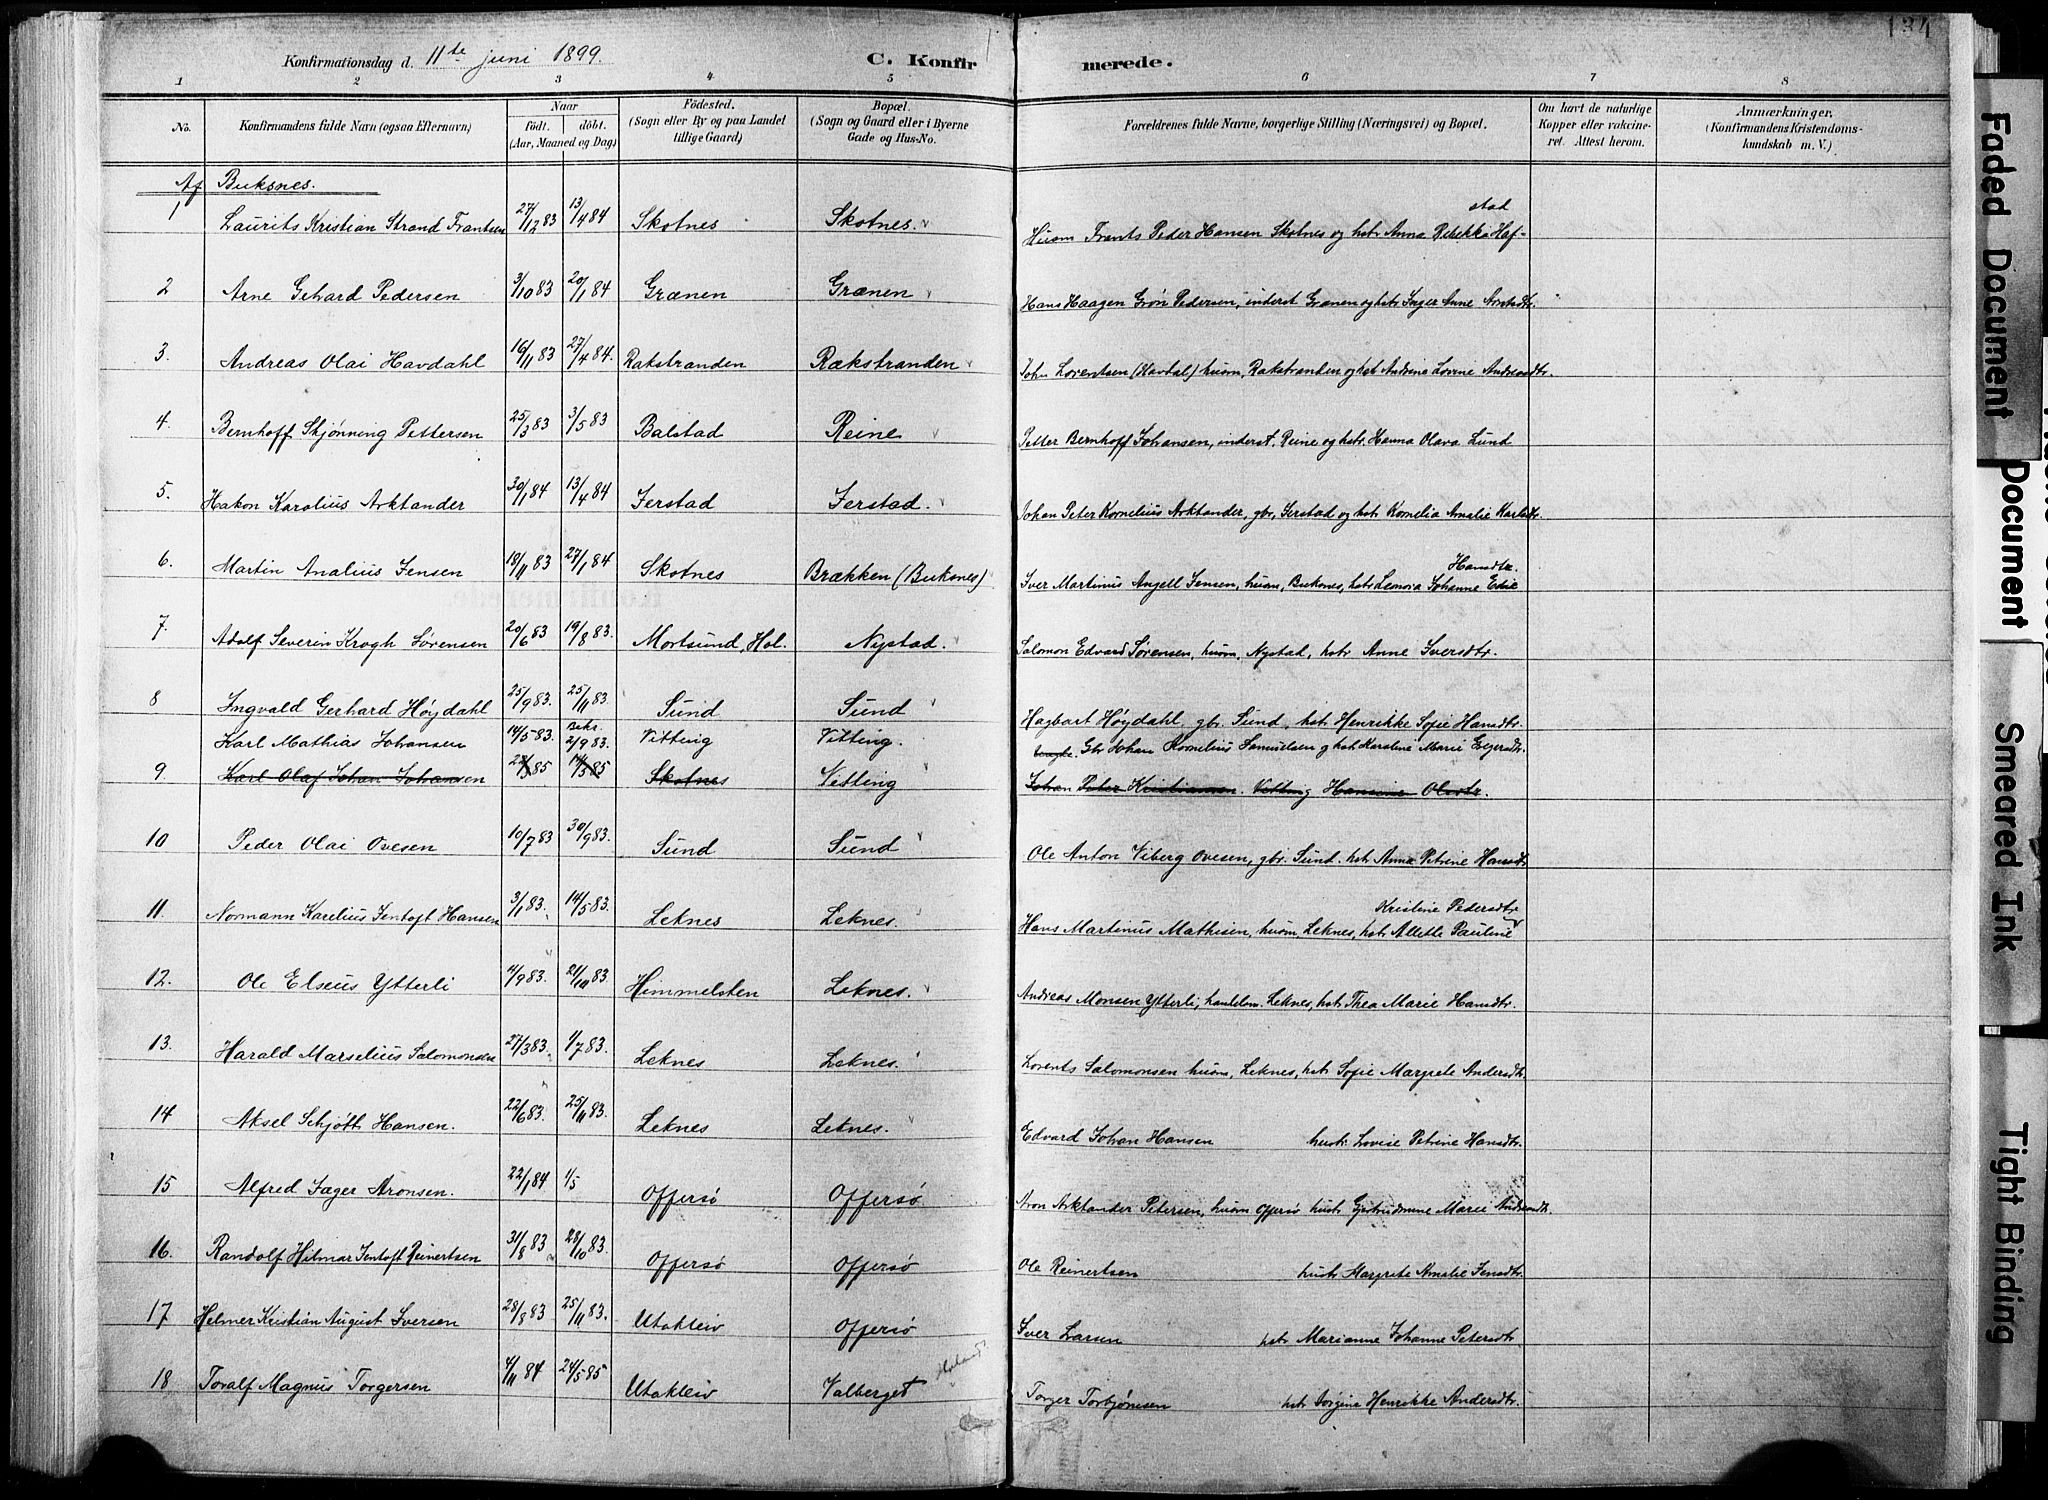 134
Konfirmationsdag d. 11te juni 1899.
C. Konfirmerede.
1 2 3 4 5 6 7 8
No. Konfirmandens fulde Navn (ogsaa Efternavn) Naar født. døbt. (Aar, Maaned og Dag) Fødested. (Sogn eller By og paa Landet tillige Gaard) Bopæl. (Sogn og Gaard eller i Byerne Gade og Hus-No. Forældrenes fulde Navne, borgerlige Stilling (Næringsvei) og Bopæl. Om havt de naturlige Kopper eller vakcineret. Attest herom. Anmærkninger. (Konfirmandens Kristendomskundskab m. V.)
Af Buksnes.
1 Laurits Kristian Strand Frantsen 27/12 83 13/4 84 Skotnes Skotnes. Husm Frants Peder Hansen Skotnes og hstr Anna Rebekka Hafstad
2 Arne Gehard Pedersen 3/10 83 20/1 84 Grænen Grænen Hans Haagen Grøn Pedersen, inderst Grænen og hstr Inger Anne Arntsdtr.
3. Andreas Olai Havdahl 16/11 83 27/4 84. Rakstranden Rækstranden John Lorentsen (Havdal) husm, Rakstranden og hstr Andrine Lovine Andreasdtr.
4. Bernhoff Skjønning Pettersen 25/3 83 3/5 83 Balstad Reine Petter Bernhoff Johansen, inderst. Reine og hstr. Hanna Olava Lund
5. Hakon Karolius Arktander 30/1 84 13/4 84 Jerstad Jerstad. Johan Peter Kornelius Arktander, gbr, Jerstad og hstr Kornelia Amalie Karlsdtr.
6. Martin Analius Jensen 18/11 83 27/1 84 Skotnes Brækken (Buksnes) Iver Martinus Angell Jensen, husm, Buksnes, hstr Leonora Johanne Edie Hansdtr.
7. Adolf Severin Krogh Sørensen 20/6 83 19/8 83. Mortsund, Hol. Nystad. Salomon Edvard Sørensen, husm, Nystad, hstr Anne Iversdtr.
8 Ingvald Gerhard Høydahl 25/9 83. 25/11 83. Sund Sund Hagbart Høydahl, gbr. Sund, hstr Henrikke Sofie Hansdtr.
Karl Mathias Johansen 14/5 83. 2/9 83. Vitting Vitting. Gbr Johan Kornelius Samuelsen og hstr Karoline Marie Ezersdtr.
9 Karl Olaf Johan Johansen Skotnes Vetting Johan Peter Kristiansen. Vetting Hansine Olsdtr.
10 Peder Olai Ovesen 10/7 83 30/9 83. Sund Sund Ole Anton Viberg Ovesen, gbr. Sund. hstr Anna Petrine Hansdtr
11. Normann Karelius Jentoft Hansen 3/1 83. 14/5 83. Leknes Leknes. Hans Martinus Mathisen, husm, Leknes, hstr Allette Pauline Kristine Pedersdtr
12. Ole Elseus Ytterli 4/9 83. 21/10 83. Himmelsten Leknes. Andreas Monsen Ytterli, Leknes, hstr Thea Marie Hansdtr.
13. Harald Marselius Salomonsen 27/3 83. 1/7 83. Leknes Leknes. Lorents Salomonsen husm, Leknes, hstr Sofie Margrete Andersdtr.
14 Aksel Schjøtt Hansen. 22/6 83. 25/11 83. Leknes Leknes. Edvard Johan Hansen hustr. Lovise Petrine Hansdtr.
15 Alfred Jæger Aronsen. 22/1 84 1/5 Offersø Offersø Aron Arktander Petersen, husm Offersø hustr Marie Andreasdtr.
16. Randolf Hilmar Jentoft Reinertsen 31/8 83 28/10 83. Offersø Offersø Ole Reinertsen hustr Margrete Amalie Jensdtr.
17 Helmer Kristian August Iversen 28/8 83 25/11 83. Utakleiv Offersø Iver Larsen hstr Marianne Johanne Petersdtr
18 Toralf Magnus Torgersen 4/11 84 24/5 85 Utakleiv Valberget Torger Torbjørnsen hstr Jørgine Henrikke Andersdtr.
Faded Document
Document
Document
Smeared Ink
Tight Binding